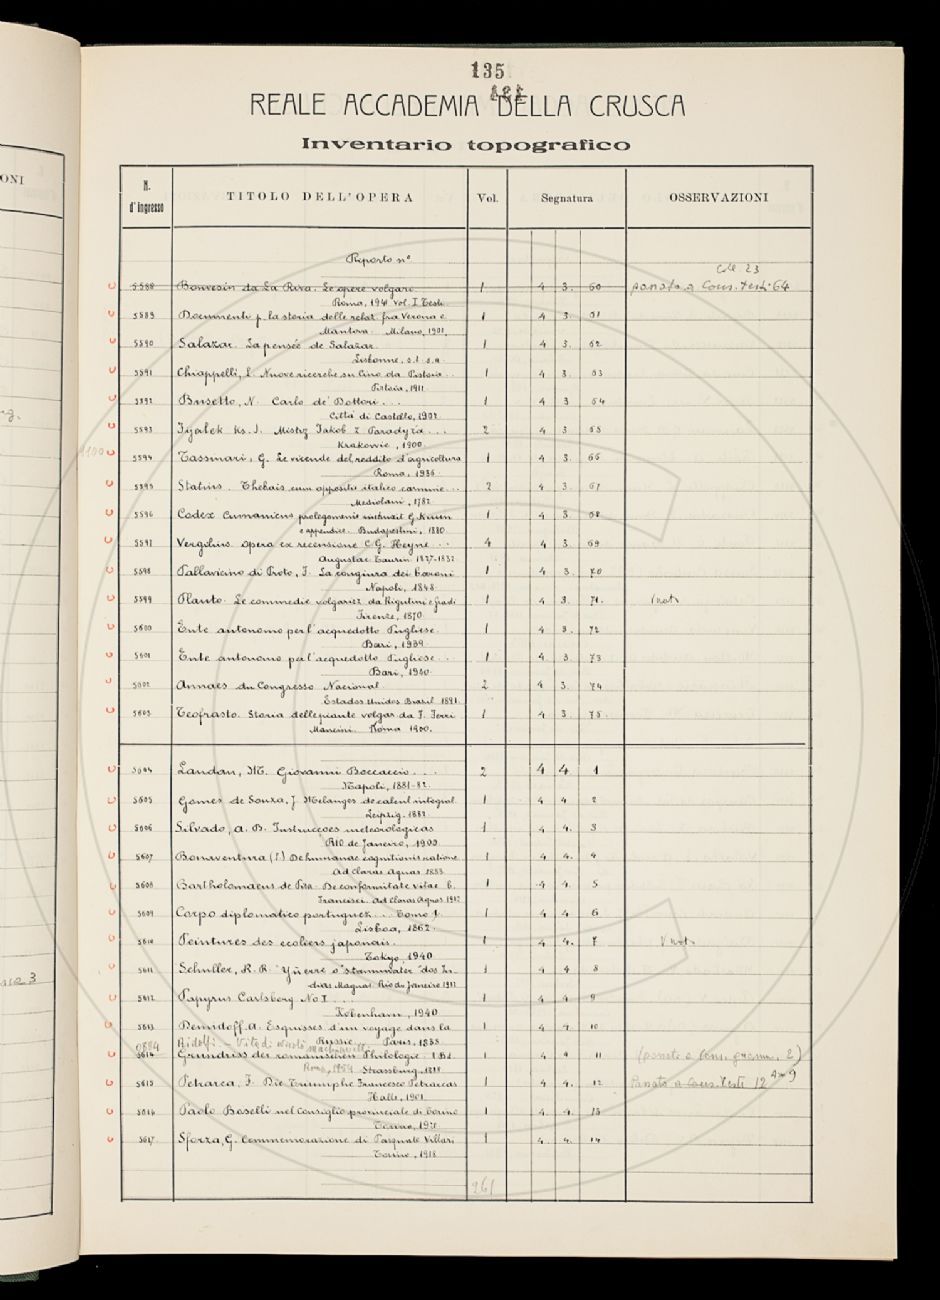 135
REALE ACCADEMIA DELLA CRUSCA
Inventario topografico
ONI
N. d'ingresso TITOLO DELL'OPERA Vol. Segnatura OSSERVAZIONI
Riporto n°
5588 Bonvesin da La Riva. Le opere volgari. 1 4 3. 60
Roma, 1941 Vol. I Testi
5589 Documenti p. la storia delle relaz. fra Verona e 1 4 3. 61
Mantova. Milano, 1901.
5590 Salazar. La pensée de Salazar. 1 4 3. 62
Lisbonne, s.t. s.a.
5591 Chiappelli, L. Nuove ricerche su Cino da Pistoia.. 1 4 3. 63
Pistoia, 1911
5592 Busetto, N. Carlo de' Dottori... 1 4 3 64
Città di Castello, 1902
5593 Fijalek Ks. J. Mistrz Jakób z Paradyża... 2 4 3 65
Krakowie, 1900.
5594 Tassinari, G. Le vicende del reddito d'agricoltura 1 4 3. 66
Roma, 1936.
5595 Statius. Thebais cum opposito italico carmine... 2 4 3. 67
Mediolani, 1782.
5596 Codex Cumanicus prolegomenis instruxit G. Kuun 1 4 3. 68
e appendice. Budapestini, 1880.
5597 Vergilius. Opera ex recensione C.G. Heyne... 4 4 3. 69
Augustae Taurin. 1827-1832
5598 Pallavicino di Proto, F. La congiura dei baroni 1 4 3. 70
Napoli, 1848.
5599 Plauto. Le commedie volgarizz. da Rigutini e Gradi 1 4 3. 71.
Firenze, 1870.
5600 Ente autonomo per l'acquedotto Pugliese. 1 4 3. 72
Bari, 1939.
5601 Ente autonomo per l'acquedotto Pugliese.. 1 4 3. 73
Bari, 1940.
5602 Annaes du Congresso Nacional 2 4 3. 74
Estados Unidos Brasil 1891.
5603 Teofrasto. Storia delle piante volgar. da F. Ferri 1 4 3. 75.
Mancini. Roma 1900.
5604 Landau, M. Giovanni Boccaccio... 2 4 4. 1
Napoli, 1881-82.
5605 Gomes de Souza, J. Mélanges de calcul intégral. 1 4 4 2
Leipzig. 1882.
5606 Silvado, A. B. Instrucções meteorologicas 1 4 4. 3
Rio de Janeiro, 1900
5607 Bonaventura (S.) De humanae cognitionis ratione 1 4 4. 4
Ad Claras Aquas 1883.
5608 Bartholomaeus de Pisa. De conformitate vitae b. 1 4 4. 5
Francisci. Ad Claras Aquas 1912
5609 Corpo diplomatico portuguez... Tomo I. 1 4 4 6
Lisboa, 1862.
5610 Peintures des écoliers japonais. 1 4 4. 7
Tokyo, 1940
5611 Schuller, R. R. Yñerre o "stammvater" dos In- 1 4 4 8
dios Maynas. Rio de Janeiro 1912
5612 Papyrus Carlsberg No I... 1 4 4 9
Köbenhavn, 1940
5613 Demidoff, A. Esquisses d'un voyage dans la 1 4 4. 10
Russie. Paris, 1838.
Ridolfi - Vita di Nicolò Machiavelli
5614 Grundriss der romanischen Philologie. I Bd. 1 4 4 11 (passato a Cons. gramm. 2)
Roma, 1954 Strassburg, 1888
5615 Petrarca, F. Die Triumphe Francesco Petrarcas 1 4 4. 12 Passato a Cons. Testi 12
Halle, 1901.
5616 Paolo Boselli nel Consiglio provinciale di Torino 1 4. 4. 13
Torino, 1921
5617 Sforza, G. Commemorazione di Pasquale Villari 1 4. 4. 14
Torino, 1918